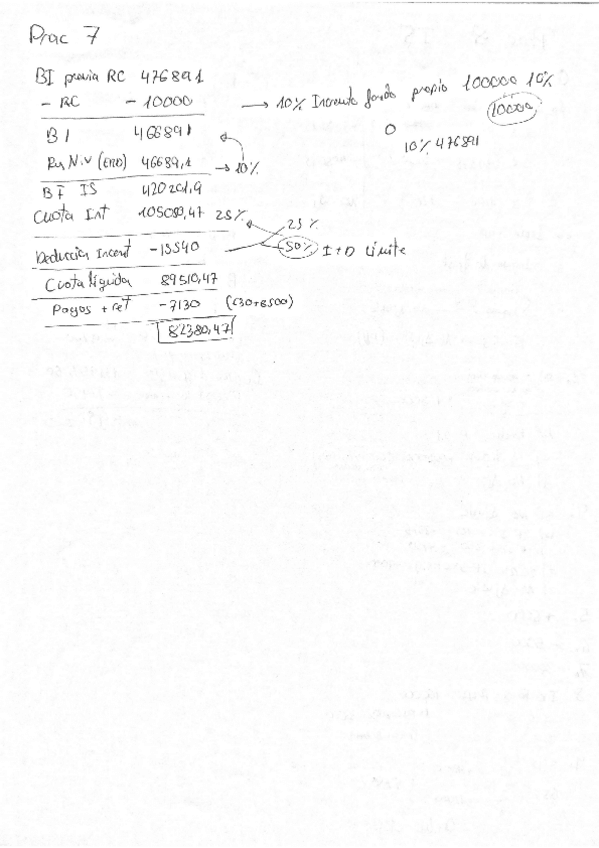 Prac 7
BI previa RC 476891
- RC - 10000 → 10% Incremto fondo propio 100000 10%
10000
o
10% 476891
BI 466891
Rs N.V (ERD) 46689,1 → 10%
BI IS 420201,9
Cuota Int 105050,47 25%
25%
Deduccion Incent -15540 50% I+D Límite
Cuota líquida 89510,47
Pagos + ret -7130 (630+6500)
82380,47